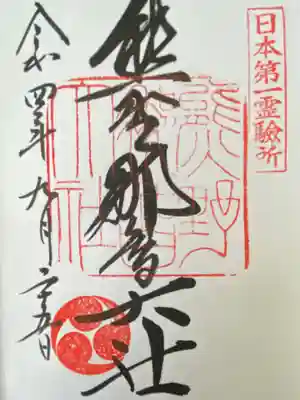 日本第一霊驗所
熊野那智大社
熊野
那智
大社
令和四年九月二十五日